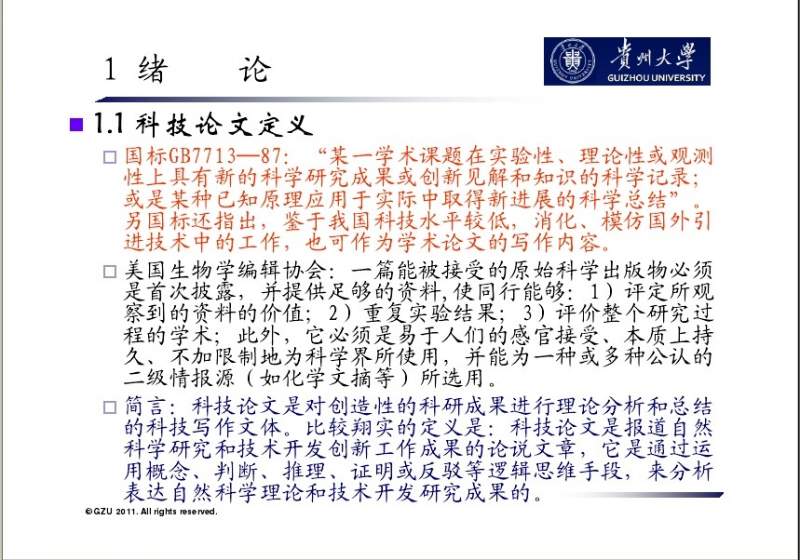 1 绪 论
贵州大学
GUIZHOU UNIVERSITY
1.1 科技论文定义
国标GB7713—87：“某一学术课题在实验性、理论性或观测
性上具有新的科学研究成果或创新见解和知识的科学记录；
或是某种已知原理应用于实际中取得新进展的科学总结”。
另国标还指出，鉴于我国科技水平较低，消化、模仿国外引
进技术中的工作，也可作为学术论文的写作内容。
美国生物学编辑协会：一篇能被接受的原始科学出版物必须
是首次披露，并提供足够的资料,使同行能够：1）评定所观
察到的资料的价值；2）重复实验结果；3）评价整个研究过
程的学术；此外，它必须是易于人们的感官接受、本质上持
久、不加限制地为科学界所使用，并能为一种或多种公认的
二级情报源（如化学文摘等）所选用。
简言：科技论文是对创造性的科研成果进行理论分析和总结
的科技写作文体。比较翔实的定义是：科技论文是报道自然
科学研究和技术开发创新工作成果的论说文章，它是通过运
用概念、判断、推理、证明或反驳等逻辑思维手段，来分析
表达自然科学理论和技术开发研究成果的。
© GZU 2011. All rights reserved.